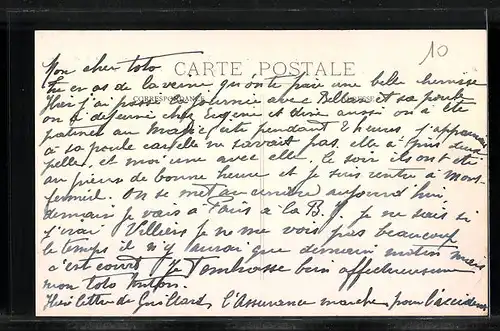 10
CARTE POSTALE
CORRESPONDANCE
Mon cher toto
tu en as de la veine qu'on te paie une belle chemise
Hier j'ai passé la journée avec et sa poule
on a déjeuné chez Eugène et diné aussi on a été
patiner au Magic city pendant 2 heures j'apprenais
à sa poule car elle ne savait pas. elle a pris deux
pelles et moi une avec elle. le soir ils ont été
au pieu de bonne heure et je suis rentré à Mont-
fermeil. On se met au aujourd'hui
demain je vais à Paris à la B. je ne sais si
j'irai Villiers je ne me vois pas beaucoup
le temps il n'y aurait que demain matin mais
c'est court. Je t'embrasse bien affectueusement
mon toto tonton.
Hier lettre de Guillard, l'Assurance marche pour l'accident